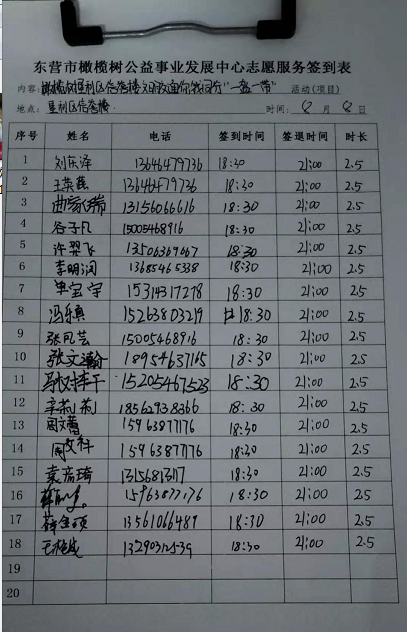 东营市橄榄树公益事业发展中心志愿服务签到表
内容: 橄榄树垦利区信誉楼 "一盔一带" 活动(项目)
地点: 垦利区信誉楼. 时间: 8 月 8 日
序号 姓名 电话 签到时间 签退时间 时长
1 刘东泽 13646479736 18:30 21:00 2.5
2 王英 13646479736 18:30 21:00 2.5
3 曲家瑞 13156066616 18:30 21:00 2.5
4 谷子凡 15005468916 18:30 21:00 2.5
5 许翠飞 13506369667 18:30 21:00 2.5
6 李明润 13685465338 18:30 21:00 2.5
7 单宝宇 15314317278 18:30 21:00 2.5
8 冯乐真 15263803219 18:30 21:00 2.5
9 张凤芸 15005468916 18:30 21:00 2.5
10 张文瀚 18954637165 18:30 21:00 2.5
11 15205467523 18:30 21:00 2.5
12 辛莉莉 18562938366 18:30 21:00 2.5
13 周文蕾 15963877176 18:30 21:00 2.5
14 周文祥 15963877176 18:30 21:00 2.5
15 袁彦琦 18:30 21:00 2.5
16 15963877176 18:30 21:00 2.5
17 薛金硕 13561066489 18:30 21:00 2.5
18 13290312539 18:30 21:00 2.5
19
20